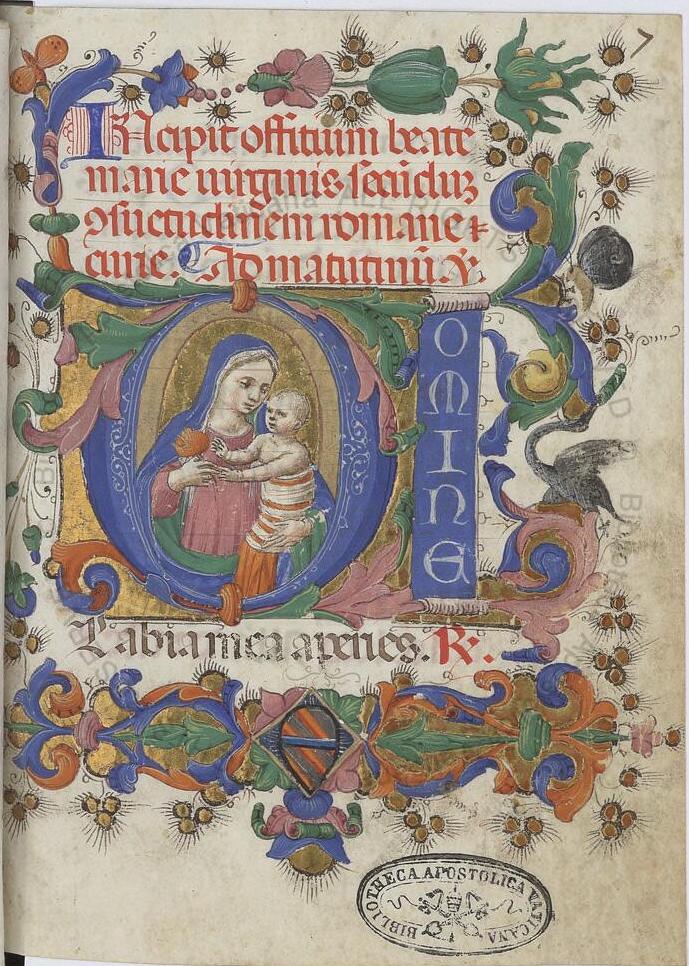 7
INcipit offitium beate
marie uirginis secūduʒ
ꝯsuetudinem romane
curie. Ad matutinū. ℣.
DOMINE
Labia mea aperies. ℟.
BIBLIOTHECA APOSTOLICA VATICANA